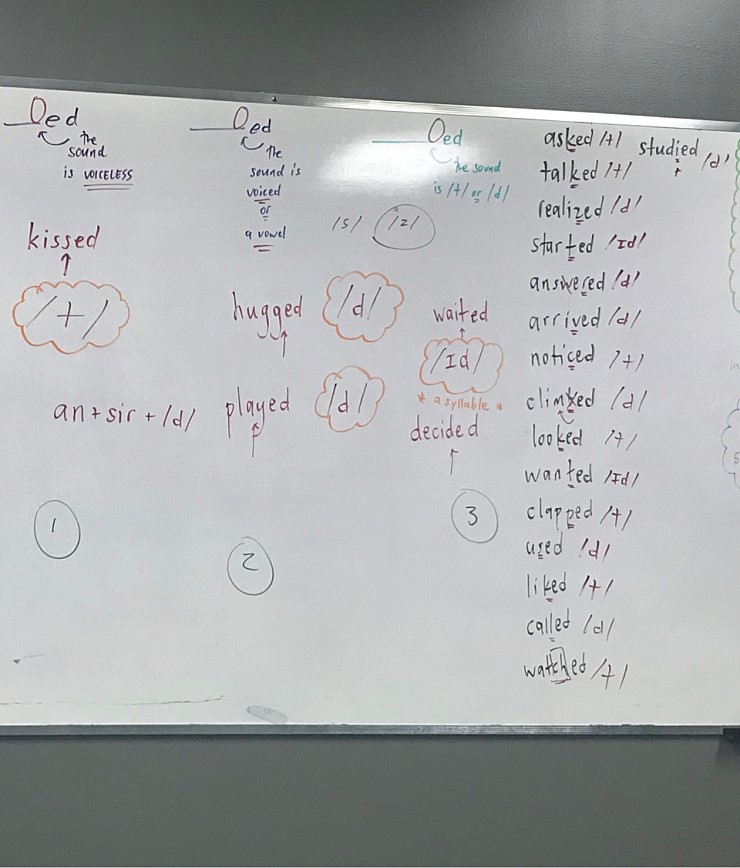 __Oed
the
sound
is VOICELESS
kissed
/t/
an+sir+/d/
1
__Oed
the
sound is
voiced
or
a vowel
hugged /d/
played /d/
2
/s/ /z/
__Oed
the sound
is /t/ or /d/
waited
/Id/
* a syllable *
decided
3
asked /t/
talked /t/
realized /d/
started /Id/
answered /d/
arrived /d/
noticed /t/
climbed /d/
looked /t/
wanted /Id/
clapped /t/
used /d/
liked /t/
called /d/
watched /t/
studied /d/